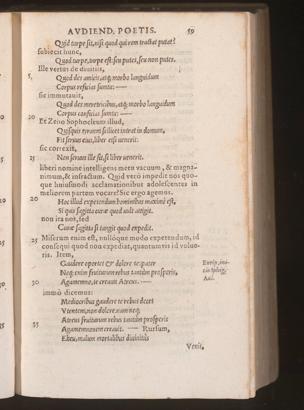 AVDIEND. POETIS. 59
Quid turpe sit, nisi quod qui rem tractat putat?
subiecit hunc,
Quod turpe, turpe est: seu putes, seu non putes.
Ille versus de diuitiis,
5 Quod des amicis, atq; morbo languidum
Corpus reficias sumtu: —
sic immutauit,
Quod des meretricibus, atq; morbo languidum
Corpus conficias sumtu: —
20 Et Zeno Sophocleum illud,
Quisquis tyranni scilicet intrat in domum,
Fit seruus eius, liber etsi uenerit:
sic correxit,
25 Non seruus ille sit, si liber uenerit.
liberi nomine intelligens metu vacuum, & magna-
nimum, & infractum. Quid vero impedit nos quo-
que huiusmodi acclamationibus adolescentes in
meliorem partem vocare? Sic ergo agemus.
20 Hoc illud expetendum hominibus maxime est,
Si quis sagitta curæ quod uult attigit.
non ita, sed
Curæ sagitta si tangit quod expedit.
25 Miserum enim est, nulloque modo expetendum, id
consequi quod non expediat, quantumuis id volue-
ris. Item,
Gaudere oportet & dolere te pater
Neq; enim fruiturum rebus tantùm prosperis,
30 Agamemno, te creauit Atreus. —
immò dicemus:
Mediocribus gaudere te rebus decet
Vtentem, non dolere: nam neq;
Atreus fruiturum rebus tantùm prosperis
35 Agamemnonem creauit. — Rursum,
Eheu, malum mortalibus diuinitus
Venit,